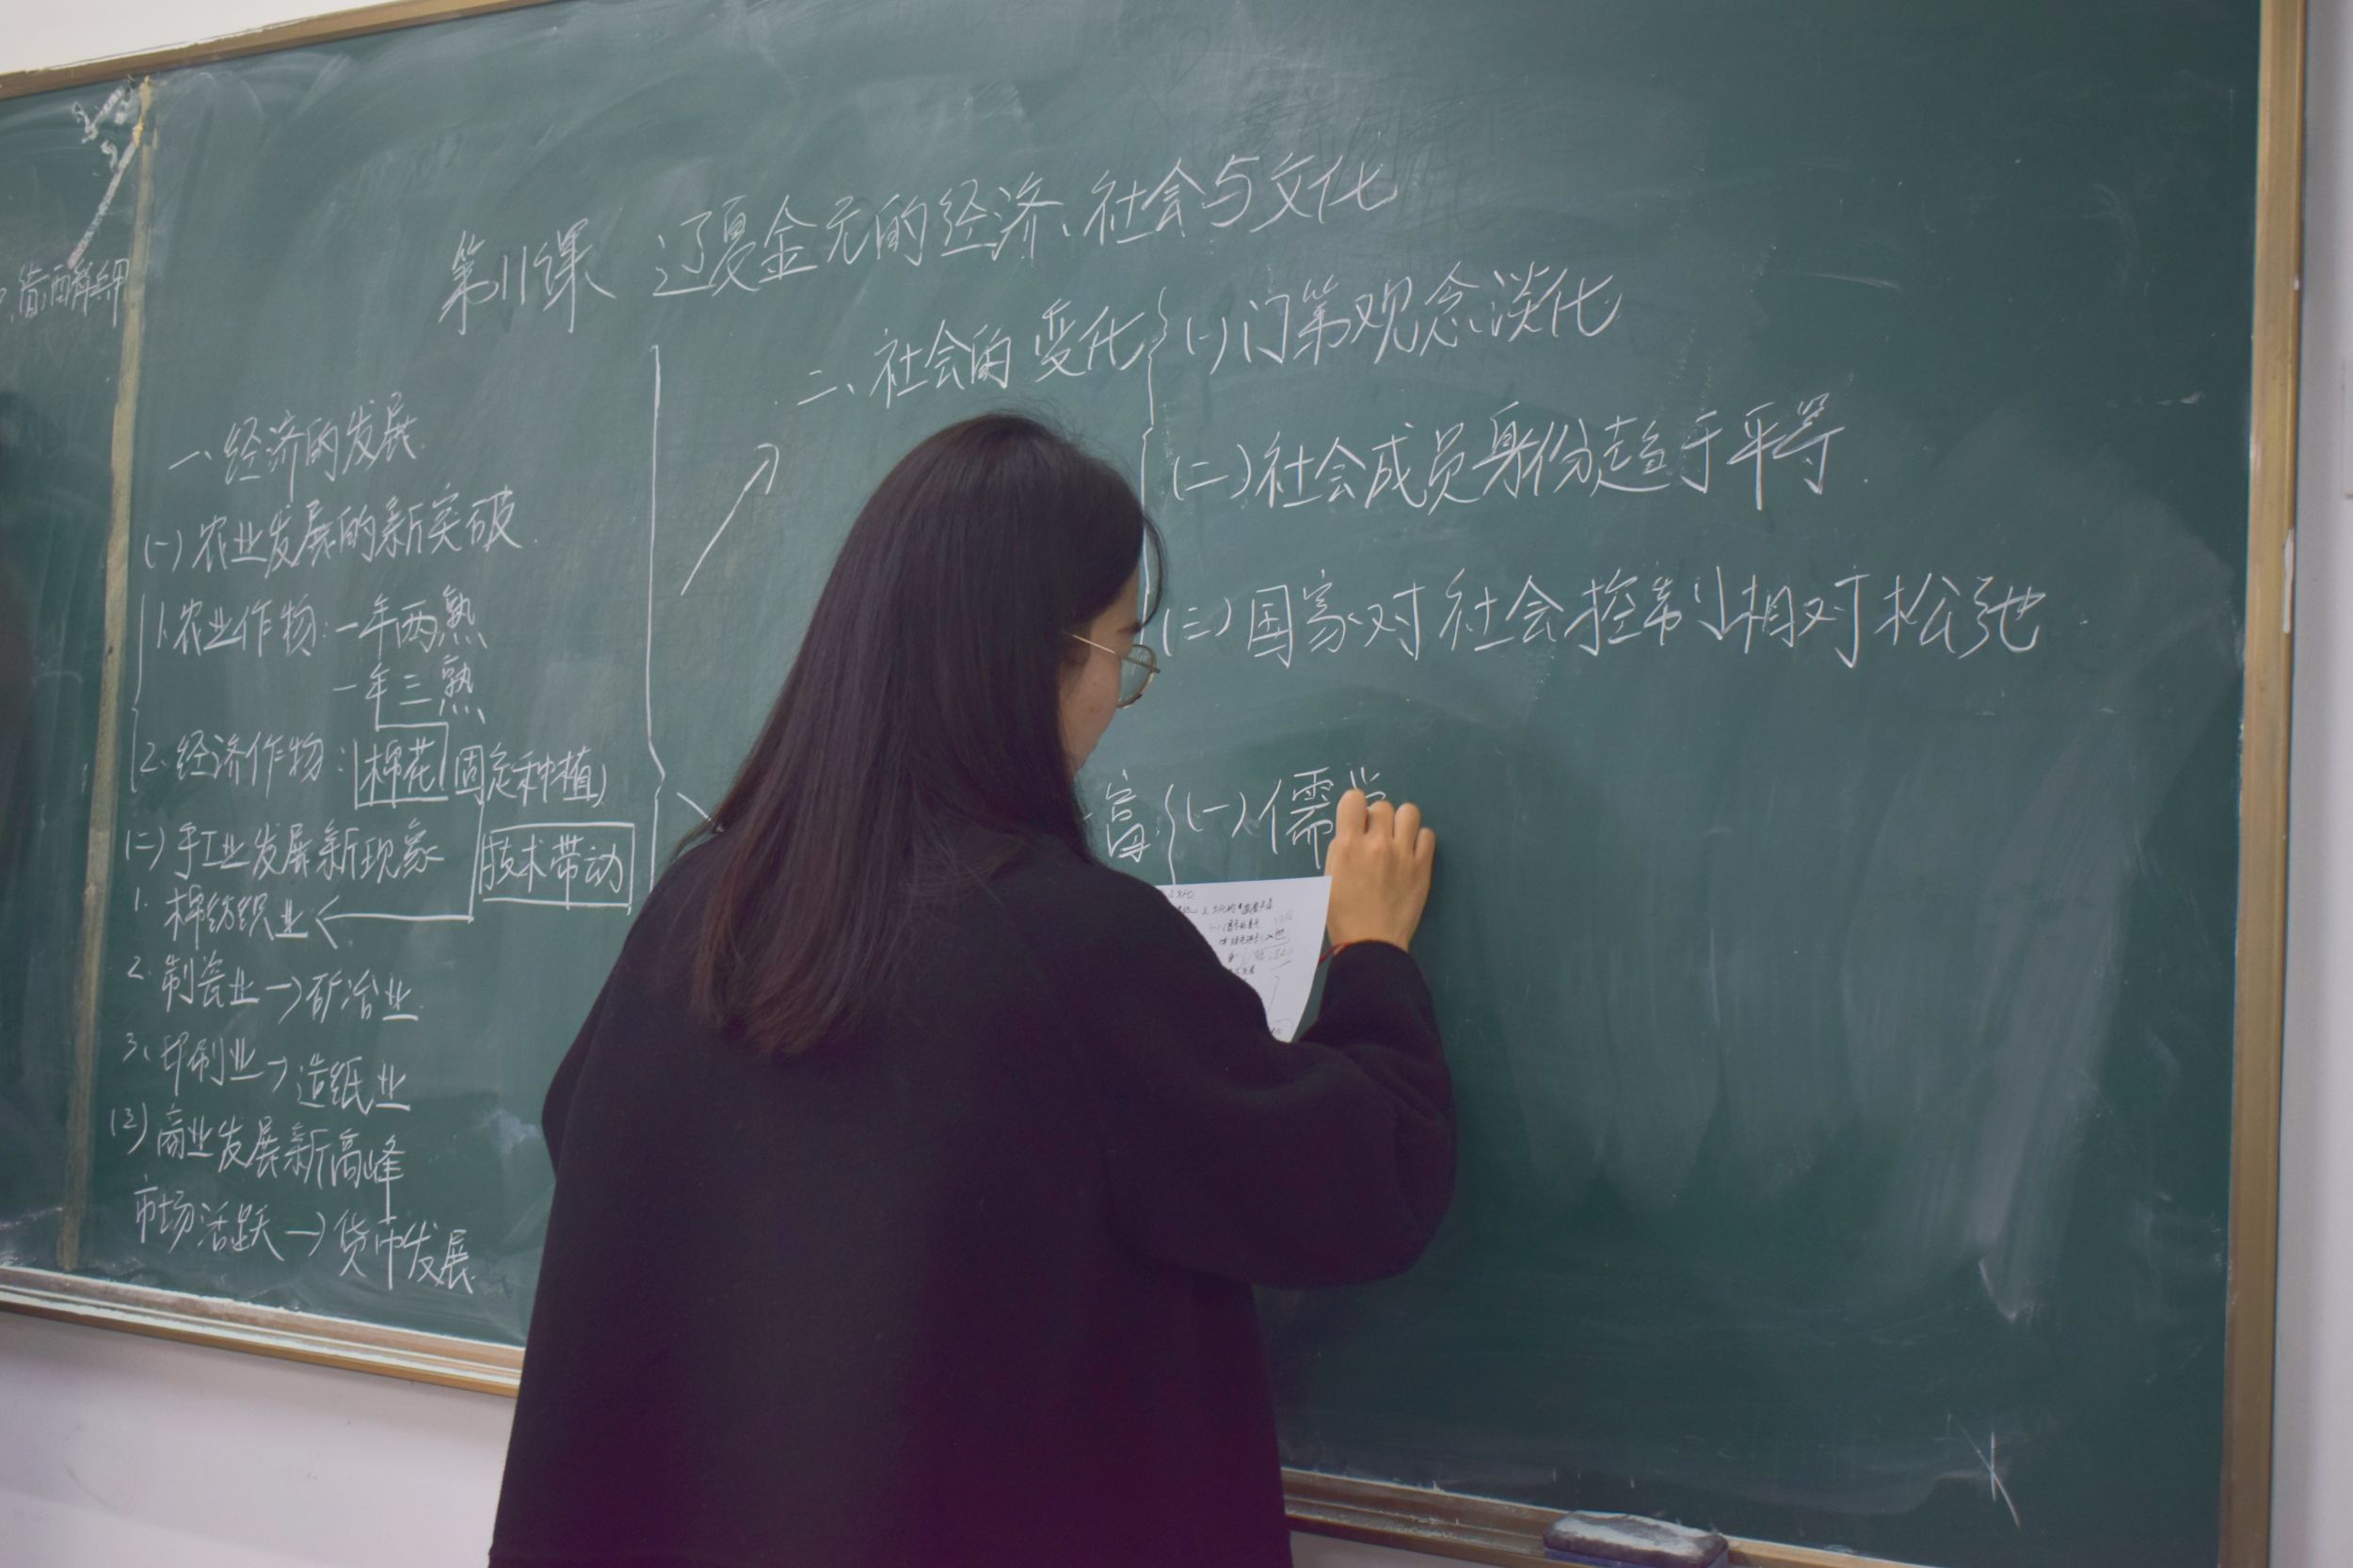 第11课 辽夏金元的经济、社会与文化
一、经济的发展
(一)农业发展的新突破
1.农业作物:一年两熟
一年三熟
2.经济作物:棉花(固定种植)
技术带动
(二)手工业发展新现象
1.棉纺织业
2.制瓷业→矿冶业
3.印刷业→造纸业
(三)商业发展新高峰
市场活跃→货币发展
二、社会的变化
(一)门第观念淡化
(二)社会成员身份趋于平等
(三)国家对社会控制相对松弛
富
(一)儒学